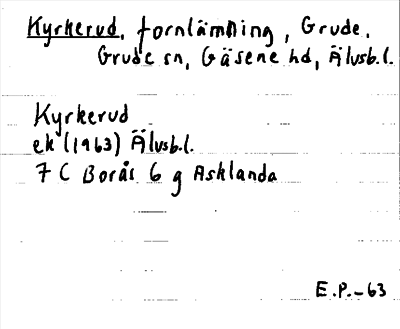 Kyrkerud, fornlämning, Grude,
Grude sn, Gäsene hd, Älvsb.l.
Kyrkerud
ek (1963) Älvsb.l.
7 C Borås 6 g Asklanda
E.P.-63